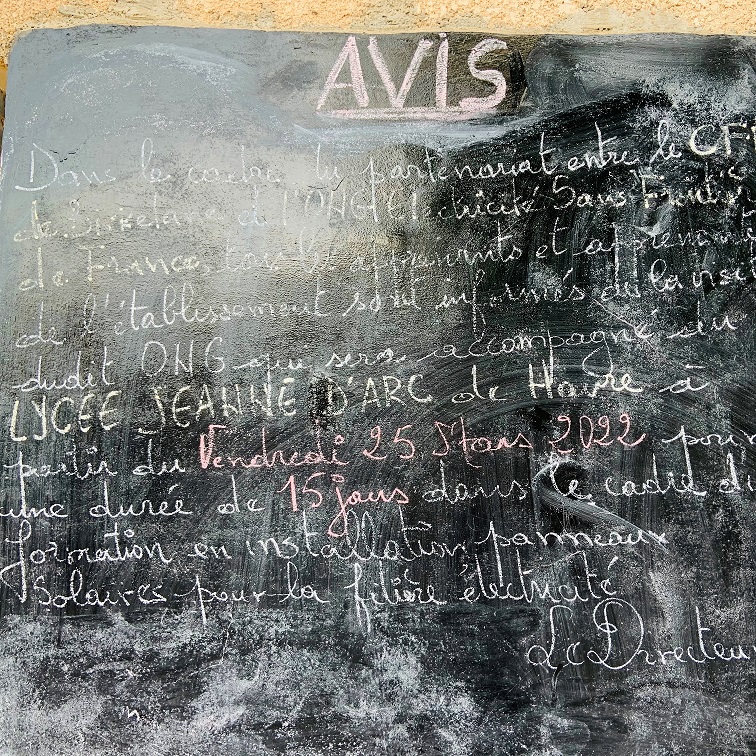 AVIS
Dans le cadre du partenariat entre le CF
de et l'ONG Electricité Sans Frontiè
de France, tous les apprenants et apprenant
de l'établissement sont informés de la visit
dudit ONG qui sera accompagné du
LYCEE JEANNE D'ARC de Havre à
partir du Vendredi 25 Mars 2022 pour
une durée de 15 jours dans le cadre d
formation en installation panneaux
Solaires pour la filière électricité
Le Directeur